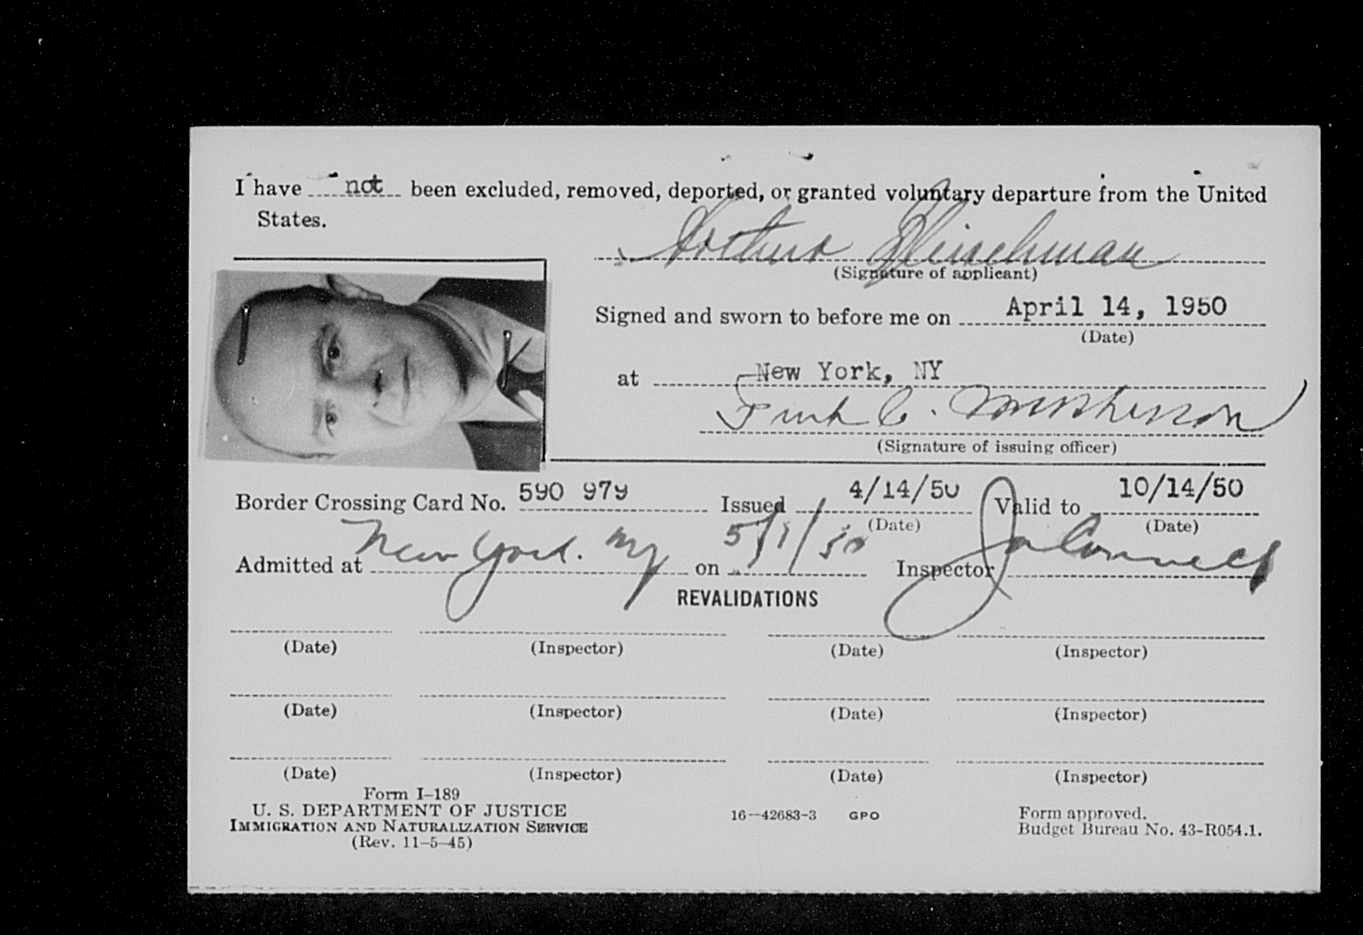 I have not been excluded, removed, deported, or granted voluntary departure from the United
States.
Arthur Fleischman
(Signature of applicant)
Signed and sworn to before me on April 14, 1950
(Date)
at New York, NY
(Signature of issuing officer)
Border Crossing Card No. 590 979 Issued 4/14/50 Valid to 10/14/50
(Date) (Date)
Admitted at New York. NY on 5/1/50 Inspector
REVALIDATIONS
(Date) (Inspector) (Date) (Inspector)
(Date) (Inspector) (Date) (Inspector)
(Date) (Inspector) (Date) (Inspector)
Form I-189
U. S. DEPARTMENT OF JUSTICE
IMMIGRATION AND NATURALIZATION SERVICE
(Rev. 11-5-45)
16—42683-3 GPO
Form approved.
Budget Bureau No. 43-R054.1.